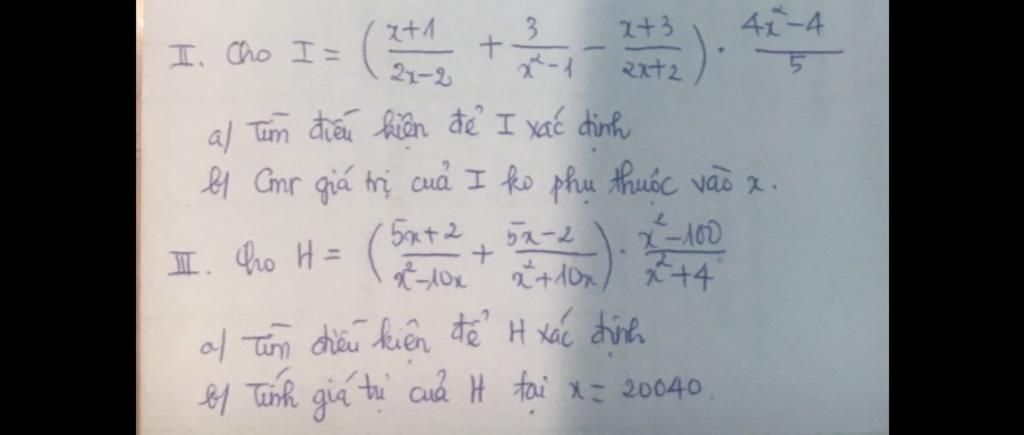 II. Cho I = ( (x+1)/(2x-2) + 3/(x²-1) - (x+3)/(2x+2) ) . (4x²-4)/5
a) Tìm điều kiện để I xác định
b) Cmr giá trị của I ko phụ thuộc vào x.
III. Cho H = ( (5x+2)/(x²-10x) + (5x-2)/(x²+10x) ) . (x²-100)/(x²+4)
a) Tìm điều kiện để H xác định
b) Tính giá trị của H tại x = 20040.